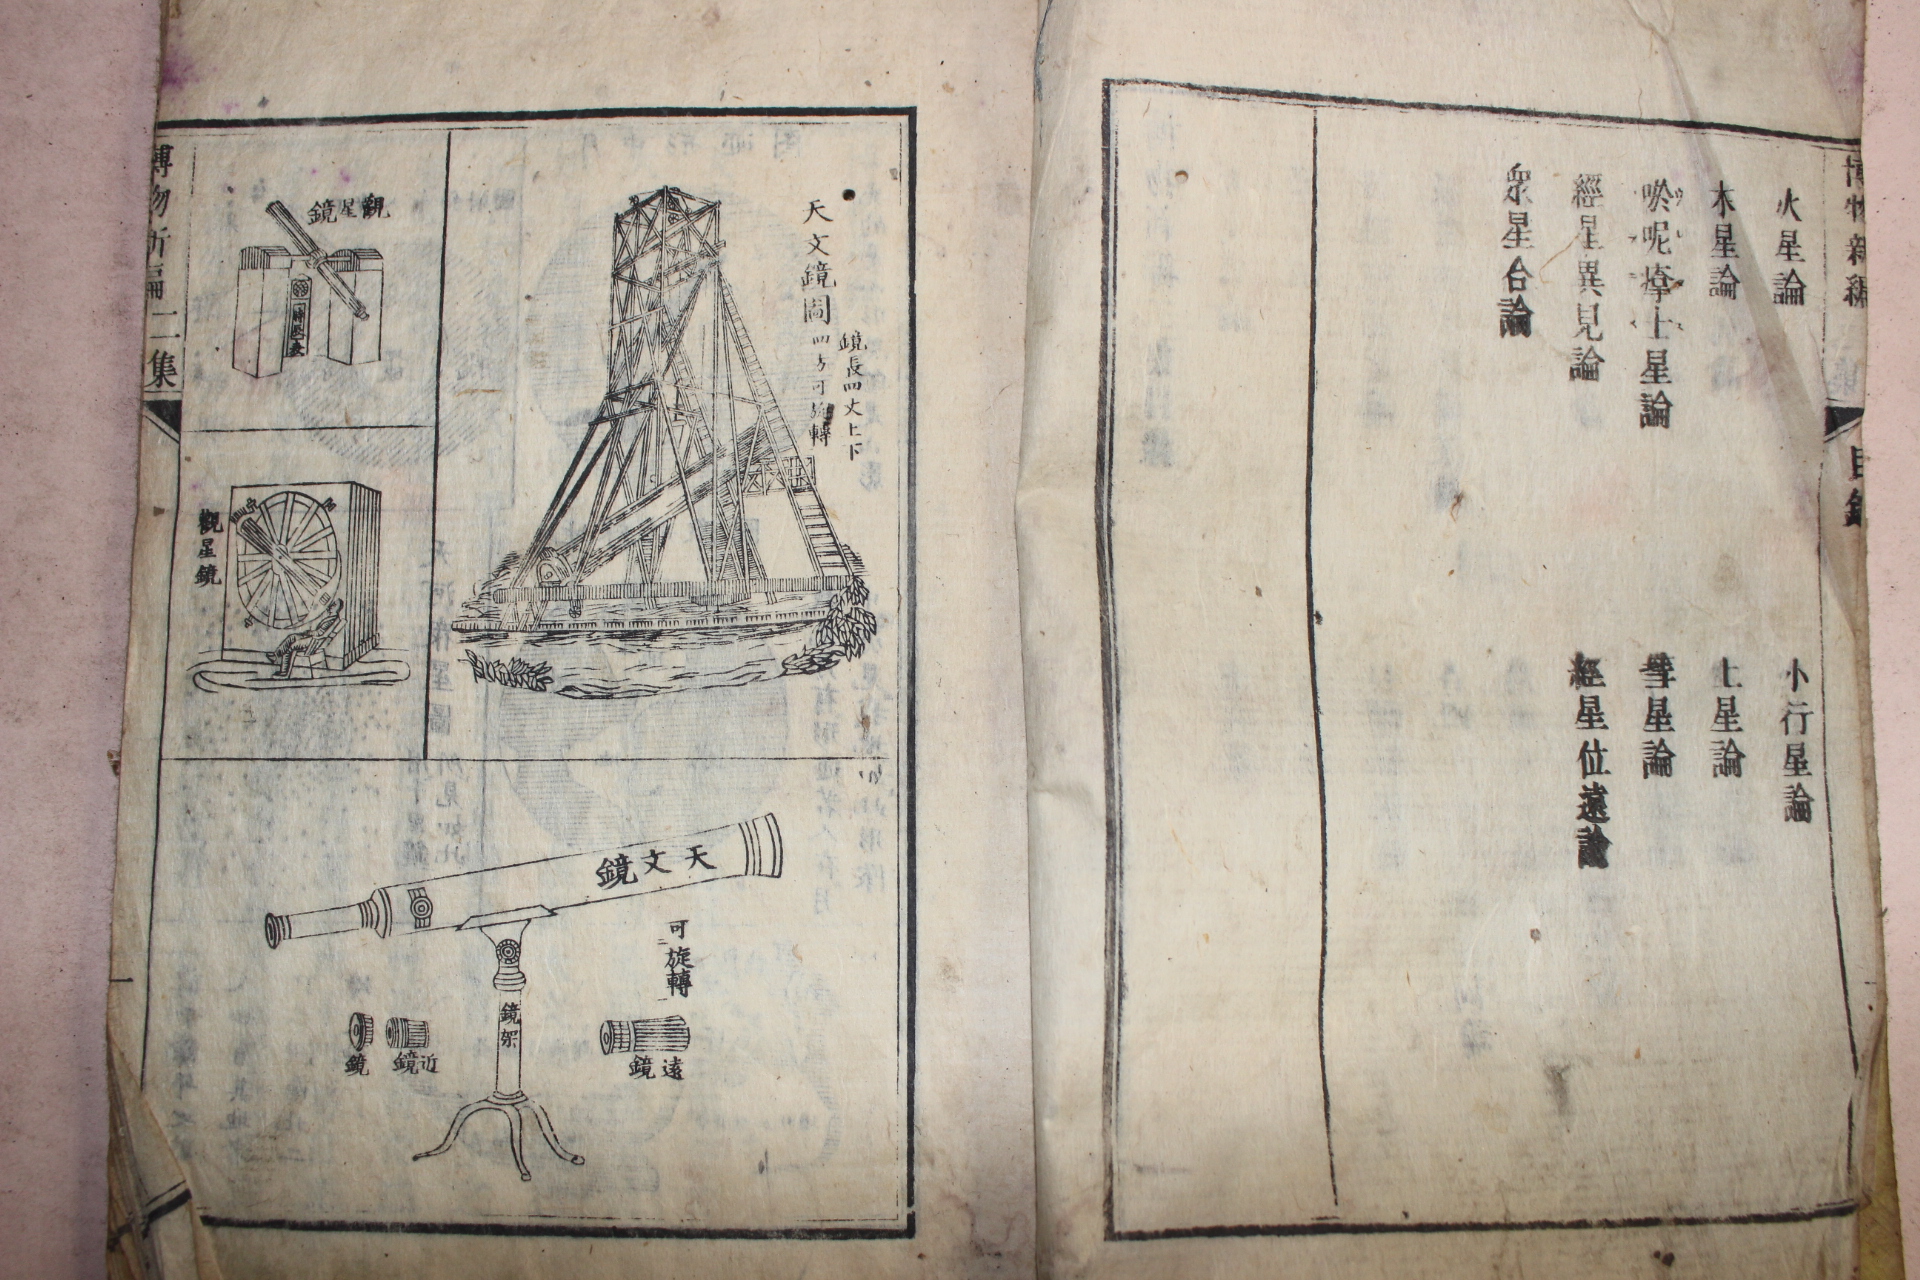 博物新編
目錄
火星論
小行星論
木星論
土星論
呢士星論
彗星論
經星異見論
經星位遠論
眾星合論
天文鏡圖
鏡長四丈上下
四方可旋轉
觀星鏡
觀星鏡
天文鏡
可旋轉
鏡架
遠鏡
近鏡
鏡
博物新編二集